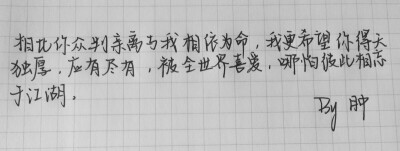 相比你众判亲离与我相依为命，我更希望你得天
独厚，应有尽有，被全世界喜爱，哪怕彼此相忘
于江湖。
By 肿